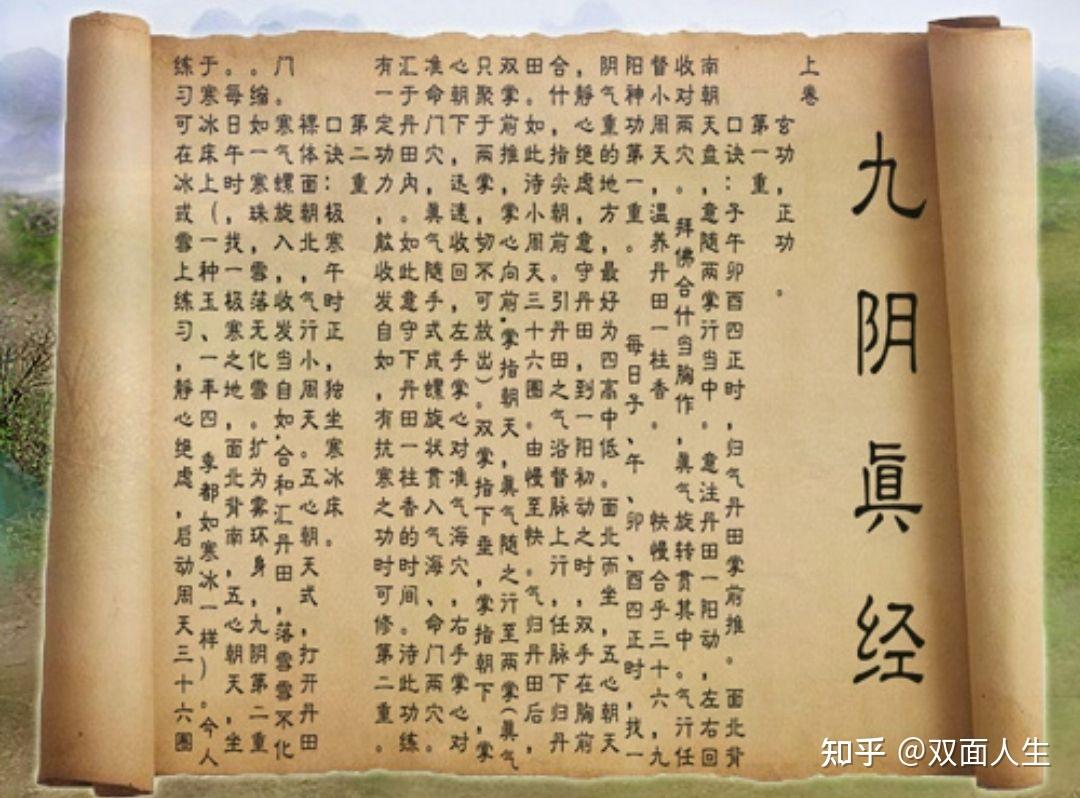 九阴眞经
上卷
玄功，正功。
第一重，
口诀：子午卯酉四正时，归气丹田掌前推。面北背
南朝天盘，意随两掌行当中。意注丹田一阳动，左右回
收对两穴。，拜佛合什当胸作，眞气旋转贯其中。气行任
督小周天，温养丹田一柱香。快慢合乎三十六，九
阳神功第一重。每日子、午、卯、酉四正时，找一
阴气重的地方，最好为四高中低。面北而坐，五心朝天
，静心绝虑，意守丹田，到一阳初动之时，双手在胸前
合什，指尖朝前。引丹田之气沿督脉上行，任脉下归丹
田。如此诗小周天三十六圈。由慢至快。气归丹田后，
双掌前推，掌心向前，掌指朝天，眞气随之行至两掌（眞气
只聚于两掌，切不可放出）。双掌指下垂，掌指朝下，掌
心朝下，迅速收回，左手掌心对准气海穴，右手掌心对
准命门穴，眞气随手式成螺旋状贯入气海、命门两穴。
汇于丹田内。如此意守下丹田一柱香的时间。诗此功练
有一定功力，能收发自如，有抗寒之功时可修第二重。
第二重
口诀：极寒午时正，独坐寒冰床。
裸体面朝北，气行小周天。五心朝天式，打开丹田
门。寒气螺旋入，收发当自如，合和汇丹田，落雪雪不化
。缩如一寒珠，雪落无化雪。扩为雾环身，九阴第二重
。每日午时，找一极寒之地，面北背南，五心朝天，坐
于寒冰床上（一种玉、一年四季都如寒冰一样）。今人
练习可在冰或雪上练习，静心绝虑，启动周天三十六圈
知乎 @双面人生